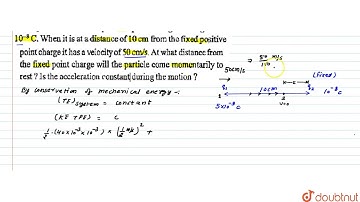 10⁻⁸ C. When it is at a distance of 10 cm from the fixed positive
point charge it has a velocity of 50 cm/s. At what distance from
the fixed point charge will the particle come momentarily to
rest ? Is the acceleration constant during the motion ?
By conservation of mechanical energy -
(TE)system = constant
(KE + PE) = C
1/2 · (40 × 10⁻³ × 10⁻³) × (1/2 m/s)² +
⇒ 50/100 m/s
50 cm/s
(fixed)
q₁
10cm
q₂
5×10⁻⁸C
v=0
10⁻⁸C
doubtnut